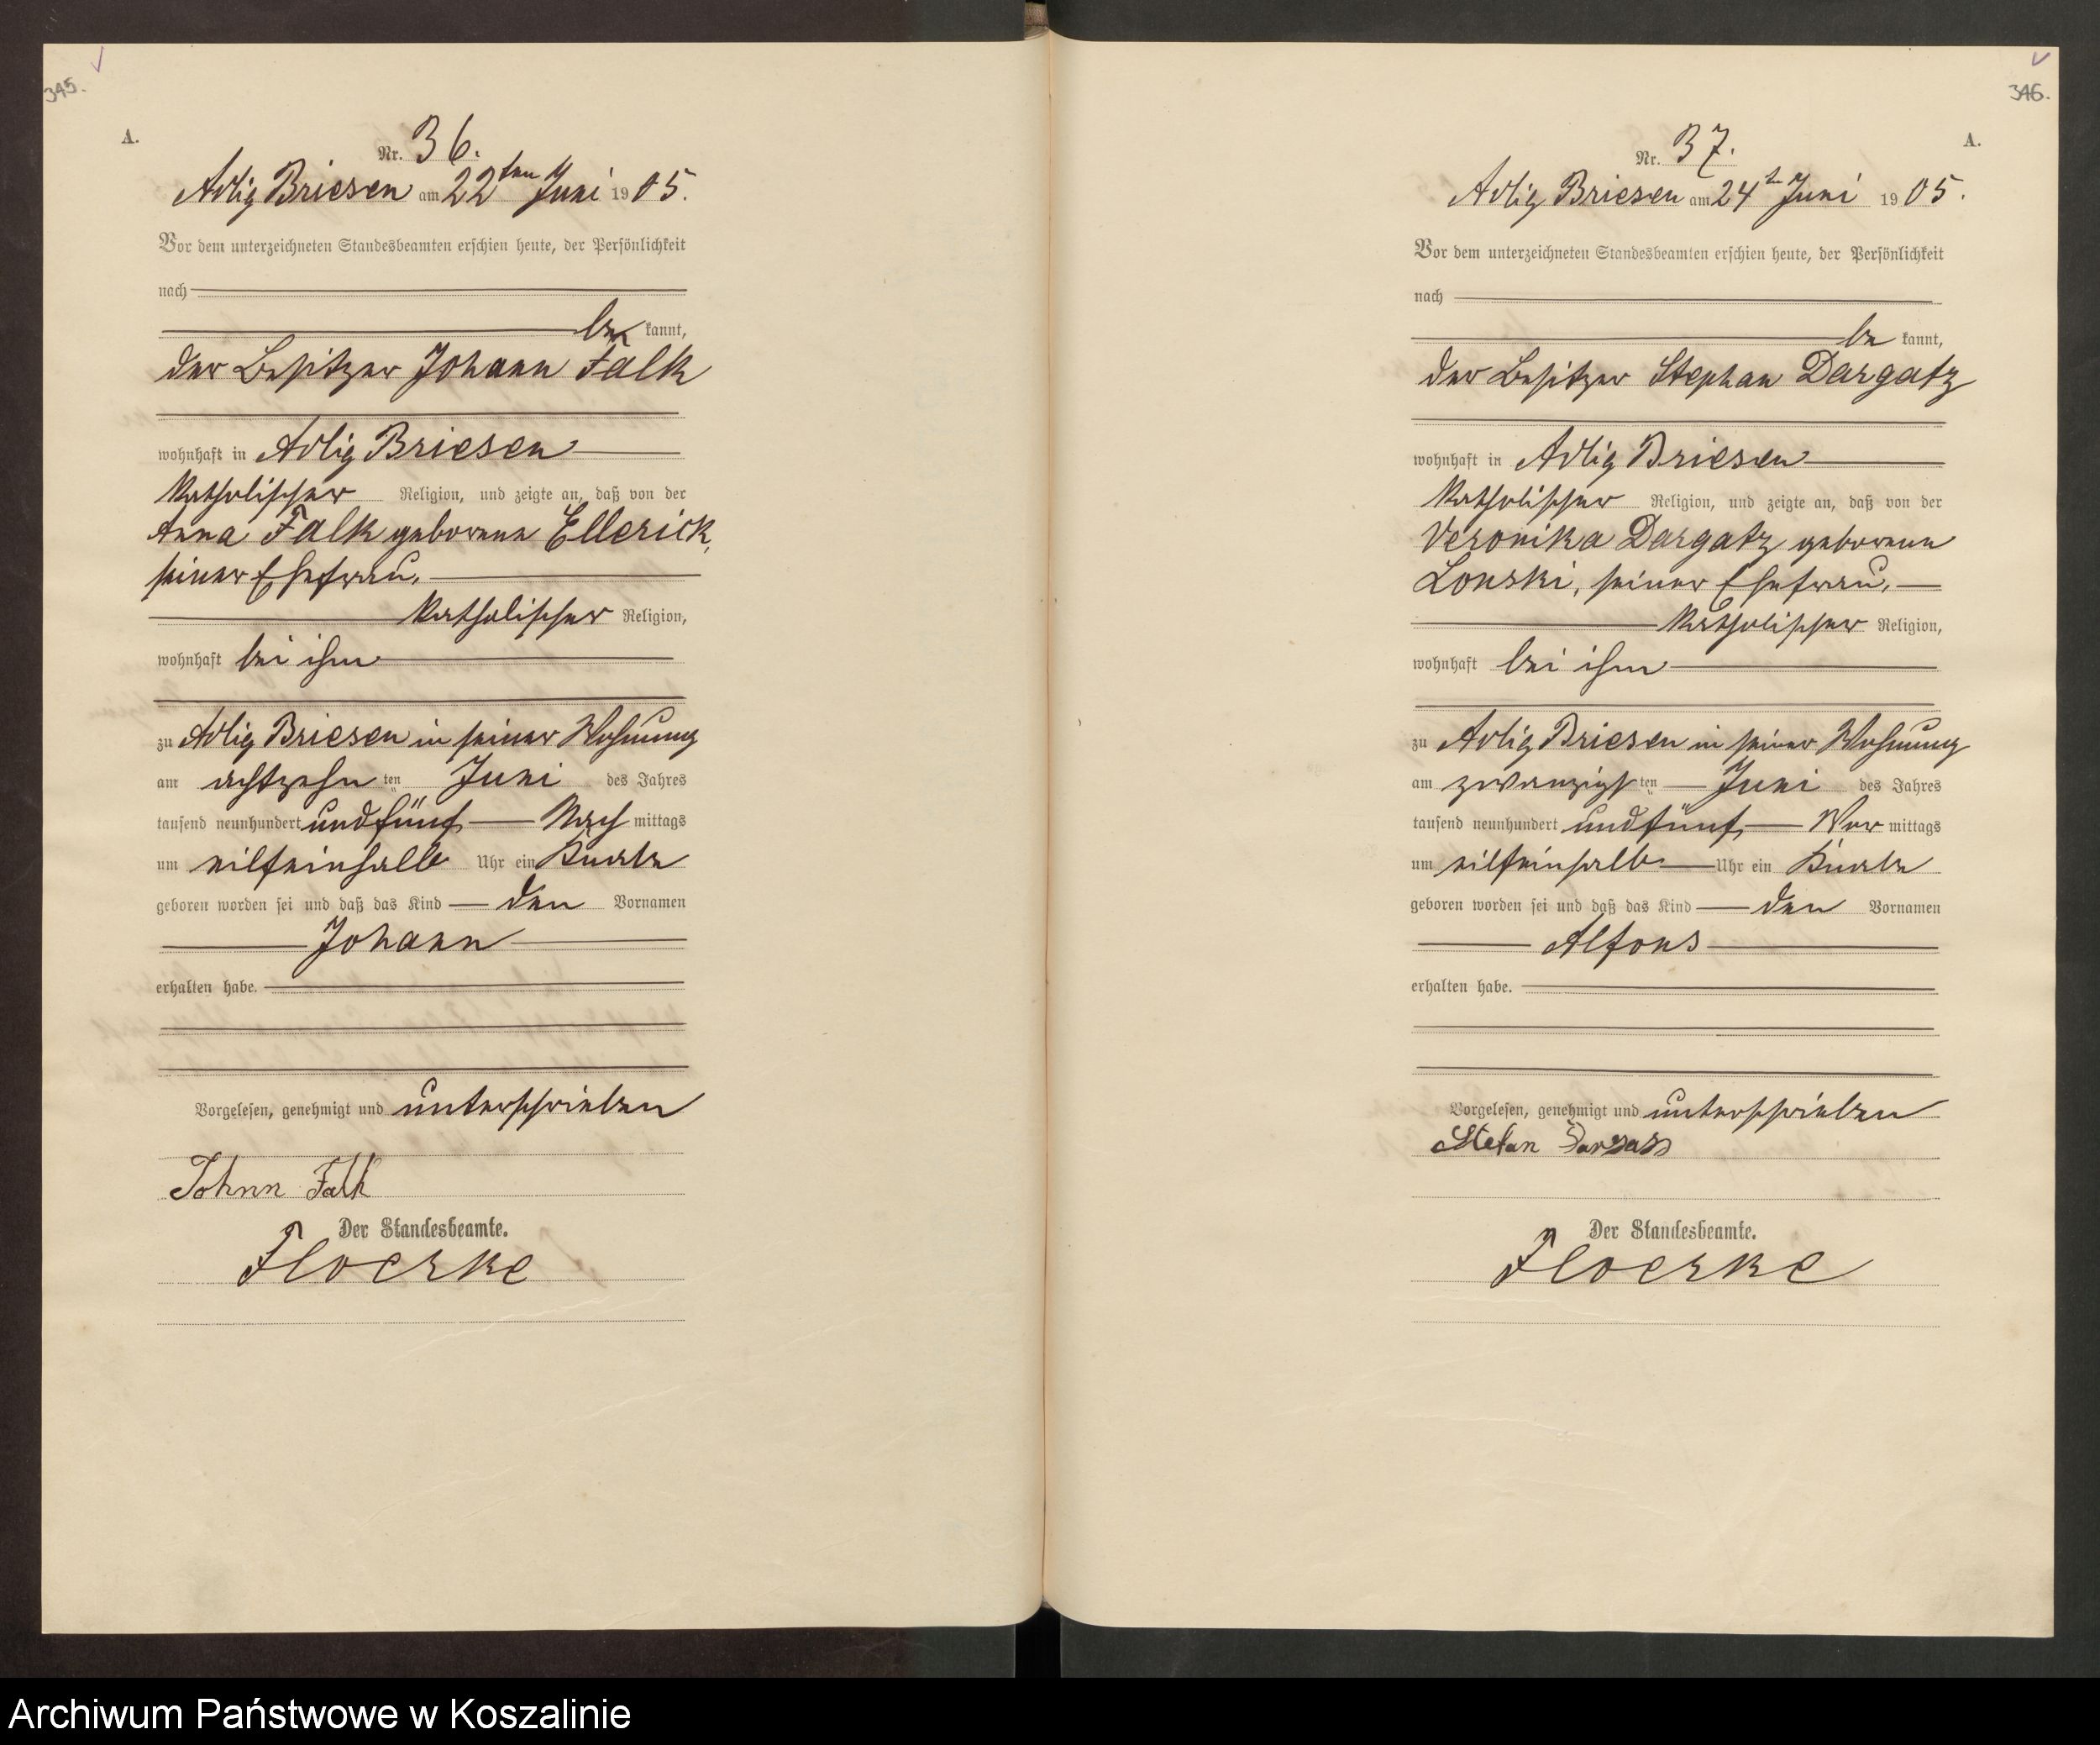 345.
A.
Nr. 36.
Adlig Briesen am 22ten Juni 1905.
Vor dem unterzeichneten Standesbeamten erschien heute, der Persönlichkeit
nach
be kannt,
der Besitzer Johann Falk
wohnhaft in Adlig Briesen
katholischer Religion, und zeigte an, daß von der
Anna Falk geborene Ellerick,
seiner Ehefrau,
katholischer Religion,
wohnhaft bei ihm
zu Adlig Briesen in seiner Wohnung
am achtzehn ten Juni des Jahres
tausend neunhundert und fünf Nach mittags
um eilfeinhalb Uhr ein Knabe
geboren worden sei und daß das Kind den Vornamen
Johann
erhalten habe.
Vorgelesen, genehmigt und unterschrieben
Johnn Falk
Der Standesbeamte.
Floerke
346.
A.
Nr. 37.
Adlig Briesen am 24t Juni 1905.
Vor dem unterzeichneten Standesbeamten erschien heute, der Persönlichkeit
nach
be kannt,
der Besitzer Stephan Dargatz
wohnhaft in Adlig Briesen
katholischer Religion, und zeigte an, daß von der
Veronika Dargatz geborene
Lonski, seiner Ehefrau,
katholischer Religion,
wohnhaft bei ihm
zu Adlig Briesen in seiner Wohnung
am zwanzigs ten Juni des Jahres
tausend neunhundert und fünf Vor mittags
um eilfeinhalb Uhr ein Knabe
geboren worden sei und daß das Kind den Vornamen
Alfons
erhalten habe.
Vorgelesen, genehmigt und unterschrieben
Stefan
Der Standesbeamte.
Floerke
Archiwum Państwowe w Koszalinie